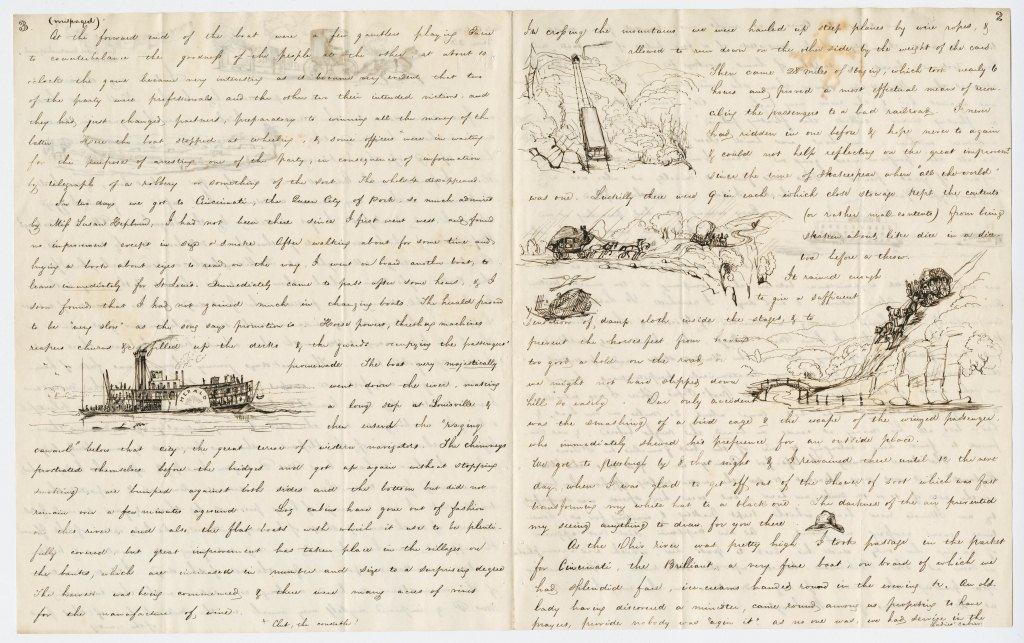 2
In crossing the mountains we were hauled up steep planes by wire ropes, &
allowed to run down on the other side by the weight of the cars.
Then came 28 miles of staging, which took nearly 10
hours and proved a most effectual means of recon-
ciling the passengers to a bad railroad. I never
had ridden in one before & hope never to again
& could not help reflecting on the great improvement
since the time of Shakespear when all the world
was one. Luckily there were 9 in each, which close stowage kept the contents
(or rather mal contents) from being
shaken about like dice in a dice
box before a throw.
It rained enough
to give a sufficient
of damp cloth inside the stages, & to
prevent the horses feet from having
too good a hold on the road, or
we might not have slipped down
hill so easily. Our only accident
was the smashing of a bird cage & the escape of the winged passenger
who immediately shewed his preference for an outside place.
We got to Pittsburgh by 8 that night & I remained there until 12 the next
day, when I was glad to get off out of the shower of soot which was fast
transforming my white hat to a black one. The darkness of the air prevented
my seeing anything to draw for you there.
As the Ohio river was pretty high I took passage in the packet
for Cincinnati, the Brilliant, a very fine boat, on board of which we
had splendid fare, ice-creams handed round in the evening &c. An old
lady having discovered a minister, came round among us proposing to have
prayers, provided nobody was "agin it" as no one was, we had service in the
ladies' cabin.
3
(mispaged)
At the forward end of the boat were a few gamblers playing
to counterbalance the goodness of the people at the other, at about 10
o'clock the game became very interesting as it became very evident that two
of the party were professionals and the other two their intended victims, and
they had just changed partners, preparatory to winning all the money of the
latter. Here the boat stopped at Wheeling, & some officers were in waiting
for the purpose of arresting one of the party, in consequence of information
by telegraph of a robbery or something of the sort. The whole 4 disappeared.
In two days we got to Cincinnati, the Queen City of Pork, so much admired
by Miss Susan Hepburn. I had not been there since I first went west and found
no improvement except in size & smoke. After walking about for some time and
buying a book about eyes to read on the way, I went on board another boat, to
leave immediately for St. Louis. Immediately came to pass after some hours, & I
soon found that I had not gained much in changing boats. The herald proved
to be "very slow" as the song says promotion is. Horse power, threshing machines
reapers churns &c filled up the decks & the guards, occupying the passengers'
promenade. The boat very majestically
went down the river, making
a long stop at Louisville &
then entered the "raging
canawl"* below that city, the great terror of western navigators. The chimneys
prostrated themselves before the bridges and got up again without stopping
smoking, we bumped against both sides and the bottom but did not
remain over a few minutes aground. Log cabins have gone out of fashion
on this river, and also the flat boats with which it use to be plenti-
fully covered but great improvement has taken place in the villages on
the banks, which are increased in number and size to a surprising degree
The harvest was being commenced & there were many acres of vines
for the manufacture of wine.